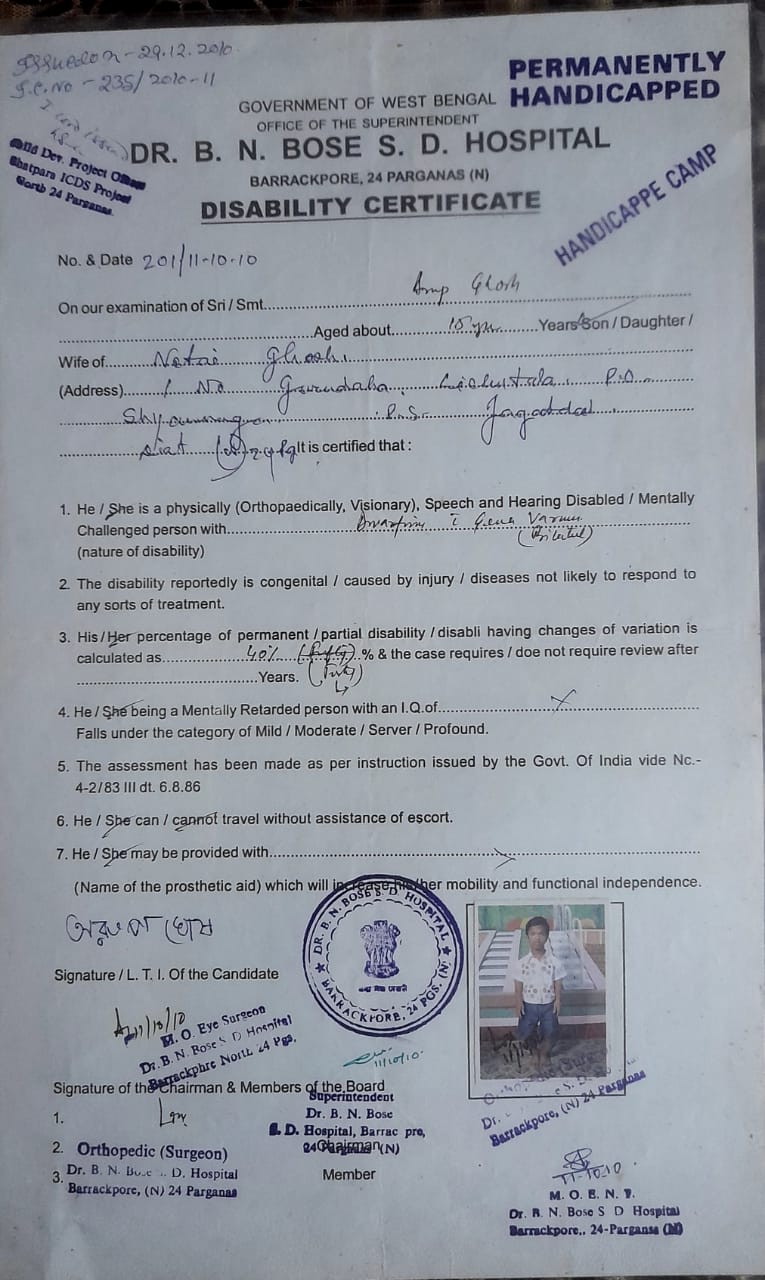 Issued on - 29.12.2010
S.C. No - 235/2010-11
PERMANENTLY
HANDICAPPED
Child Dev. Project Officer
Bhatpara ICDS Project
North 24 Parganas.
GOVERNMENT OF WEST BENGAL
OFFICE OF THE SUPERINTENDENT
DR. B. N. BOSE S. D. HOSPITAL
BARRACKPORE, 24 PARGANAS (N)
DISABILITY CERTIFICATE
HANDICAPPE CAMP
No. & Date 201/11-10-10
On our examination of Sri / Smt. Ghosh
Aged about 15 yrs Years Son / Daughter /
Wife of Netai Ghosh.
(Address) 1 No P.O.
P.S. Jagatdal
It is certified that :
1. He / She is a physically (Orthopaedically, Visionary), Speech and Hearing Disabled / Mentally
Challenged person with Dwarfism c Genu Varum
(nature of disability) (Bilateral)
2. The disability reportedly is congenital / caused by injury / diseases not likely to respond to
any sorts of treatment.
3. His / Her percentage of permanent / partial disability / disabli having changes of variation is
calculated as 40% % & the case requires / doe not require review after
Years.
4. He / She being a Mentally Retarded person with an I.Q.of X
Falls under the category of Mild / Moderate / Server / Profound.
5. The assessment has been made as per instruction issued by the Govt. Of India vide Nc.-
4-2/83 III dt. 6.8.86
6. He / She can / cannot travel without assistance of escort.
7. He / She may be provided with
(Name of the prosthetic aid) which will increase his/her mobility and functional independence.
DR. B. N. BOSE S. D. HOSPITAL
BARRACKPORE, 24 PGS. (N)
অরূপ ঘোষ
Signature / L. T. I. Of the Candidate
11/10/10
M. O. Eye Surgeon
Dr. B. N. Bose S D Hospital
Barrackphre North 24 Pgs.
11/10/10
Signature of the Chairman & Members of the Board
1.
2. Orthopedic (Surgeon)
3. Dr. B. N. Bose S. D. Hospital
Barrackpore, (N) 24 Parganas
Superintendent
Dr. B. N. Bose
S. D. Hospital, Barrac pre,
24 Parganas (N)
Chairman
Member
Orthopedic (Surgeon)
Barrackpore, (N) 24 Parganas
11-10-10
M. O. E. N. T.
Dr. B. N. Bose S D Hospital
Barrackpore., 24-Parganas (N)